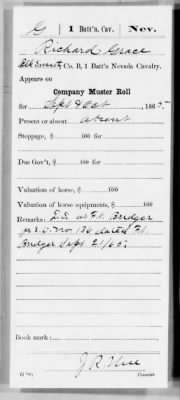 G | 1 Batt'n. Cav. | Nev.
Richard Grace
Co. B, 1 Batt'n Nevada Cavalry.
Appears on
Company Muster Roll
for Sept & Oct, 1865.
Present or absent absent
Stoppage, $ 100 for
Due Gov't, $ 100 for
Valuation of horse, $ 100
Valuation of horse equipments, $ 100
Remarks: D.S. at Ft. Bridger
pr S.O. No. 136 dated Ft.
Bridger Sept. 21/65.
Book mark:
Copyist.